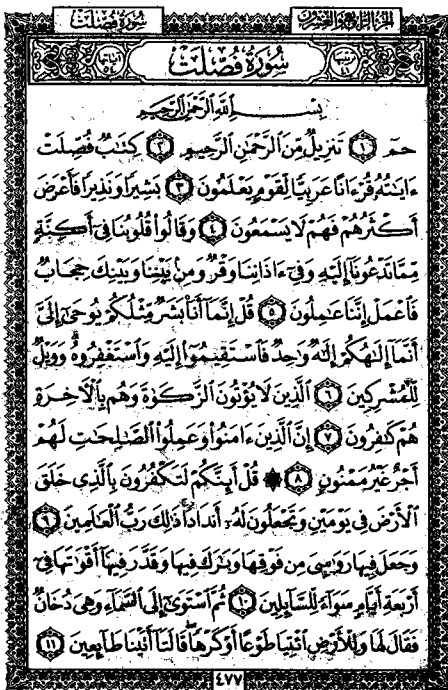 سورة فصلت
الجزء الرابع والعشرون
آياتها ٥٤
سورة فصلت
ترتيبها ٤١
بِسْمِ ٱللَّهِ ٱلرَّحْمَٰنِ ٱلرَّحِيمِ
حمٓ ١ تَنزِيلٌ مِّنَ ٱلرَّحْمَٰنِ ٱلرَّحِيمِ ٢ كِتَٰبٌ فُصِّلَتْ
ءَايَٰتُهُۥ قُرْءَانًا عَرَبِيًّا لِّقَوْمٍ يَعْلَمُونَ ٣ بَشِيرًا وَنَذِيرًا فَأَعْرَضَ
أَكْثَرُهُمْ فَهُمْ لَا يَسْمَعُونَ ٤ وَقَالُوا۟ قُلُوبُنَا فِىٓ أَكِنَّةٍ
مِّمَّا تَدْعُونَآ إِلَيْهِ وَفِىٓ ءَاذَانِنَا وَقْرٌ وَمِنۢ بَيْنِنَا وَبَيْنِكَ حِجَابٌ
فَٱعْمَلْ إِنَّنَا عَٰمِلُونَ ٥ قُلْ إِنَّمَآ أَنَا۠ بَشَرٌ مِّثْلُكُمْ يُوحَىٰٓ إِلَىَّ
أَنَّمَآ إِلَٰهُكُمْ إِلَٰهٌ وَٰحِدٌ فَٱسْتَقِيمُوٓا۟ إِلَيْهِ وَٱسْتَغْفِرُوهُ وَوَيْلٌ
لِّلْمُشْرِكِينَ ٦ ٱلَّذِينَ لَا يُؤْتُونَ ٱلزَّكَوٰةَ وَهُم بِٱلْـَٔاخِرَةِ
هُمْ كَٰفِرُونَ ٧ إِنَّ ٱلَّذِينَ ءَامَنُوا۟ وَعَمِلُوا۟ ٱلصَّٰلِحَٰتِ لَهُمْ
أَجْرٌ غَيْرُ مَمْنُونٍ ٨ ۞ قُلْ أَئِنَّكُمْ لَتَكْفُرُونَ بِٱلَّذِى خَلَقَ
ٱلْأَرْضَ فِى يَوْمَيْنِ وَتَجْعَلُونَ لَهُۥٓ أَندَادًا ذَٰلِكَ رَبُّ ٱلْعَٰلَمِينَ ٩
وَجَعَلَ فِيهَا رَوَٰسِىَ مِن فَوْقِهَا وَبَٰرَكَ فِيهَا وَقَدَّرَ فِيهَآ أَقْوَٰتَهَا فِىٓ
أَرْبَعَةِ أَيَّامٍ سَوَآءً لِّلسَّآئِلِينَ ١٠ ثُمَّ ٱسْتَوَىٰٓ إِلَى ٱلسَّمَآءِ وَهِىَ دُخَانٌ
فَقَالَ لَهَا وَلِلْأَرْضِ ٱئْتِيَا طَوْعًا أَوْ كَرْهًا قَالَتَآ أَتَيْنَا طَآئِعِينَ ١١
٤٧٧